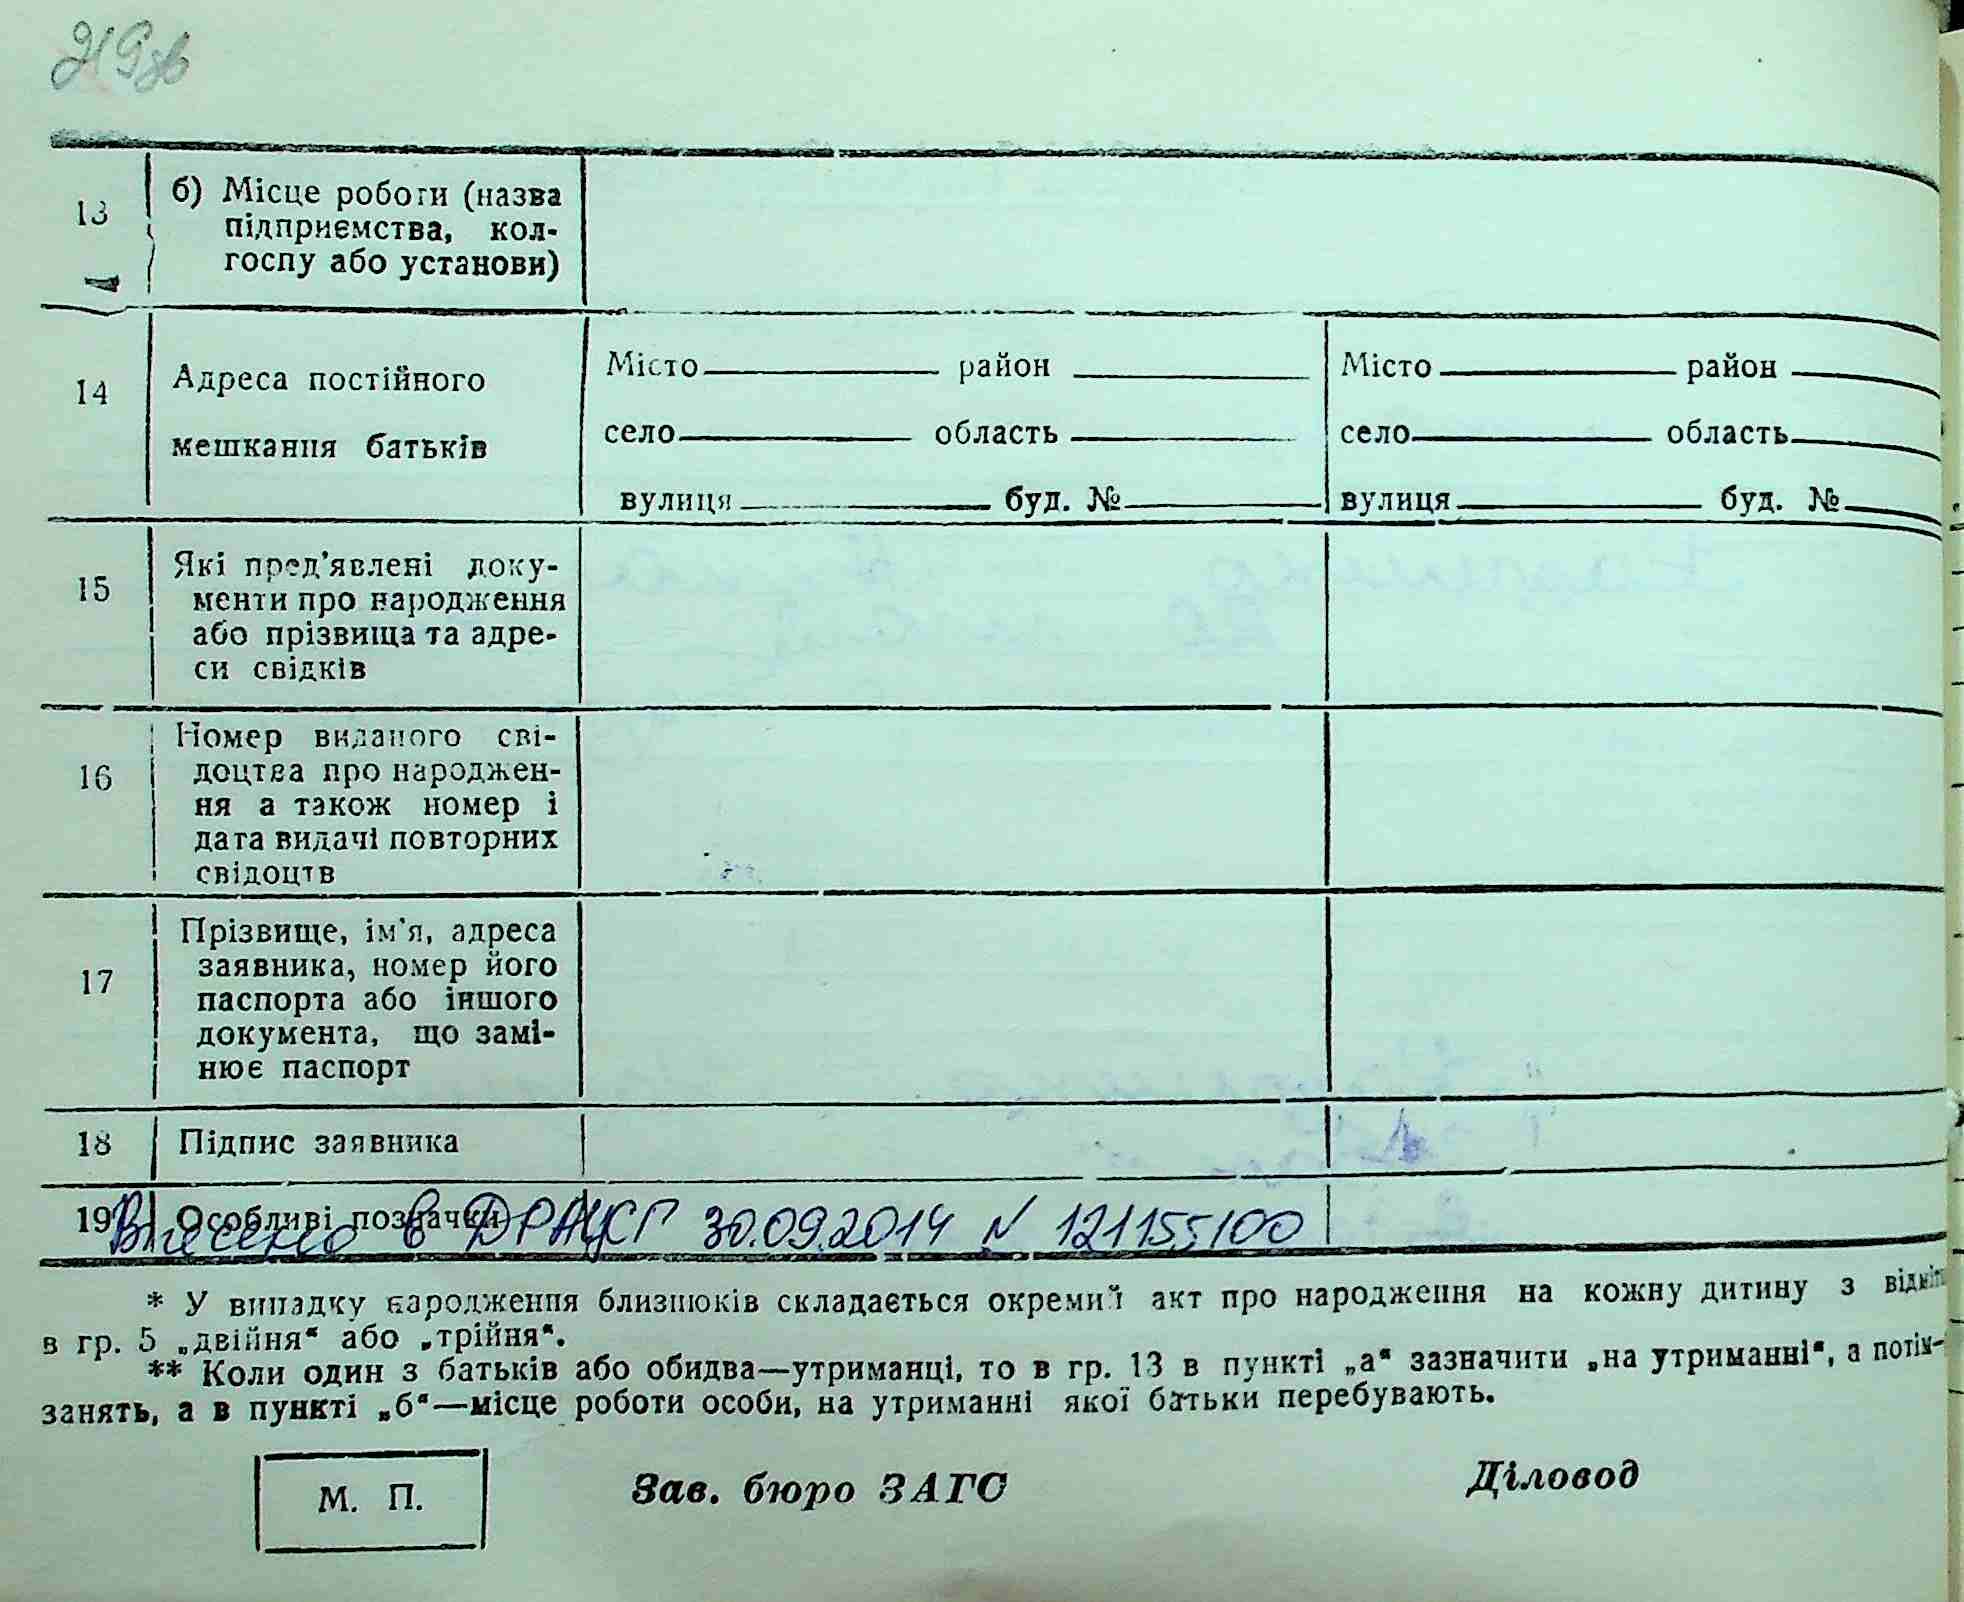 219 зв
13
б) Місце роботи (назва
підприємства, кол-
госпу або установи)
14
Адреса постійного
мешкання батьків
Місто район
село область
вулиця буд. №
Місто район
село область
вулиця буд. №
15
Які пред'явлені доку-
менти про народження
або прізвища та адре-
си свідків
16
Номер виданого сві-
доцтва про народжен-
ня а також номер і
дата видачі повторних
свідоцтв
17
Прізвище, ім'я, адреса
заявника, номер його
паспорта або іншого
документа, що замі-
нює паспорт
18
Підпис заявника
19
Особливі позначки
Внесено в ДРАЦСГ 30.09.2014 N 121155100
* У випадку народження близнюків складається окремий акт про народження на кожну дитину з
в гр. 5 „двійня“ або „трійня“.
** Коли один з батьків або обидва—утриманці, то в гр. 13 в пункті „а“ зазначити „на утриманні“, а потім-
занять, а в пункті „б“—місце роботи особи, на утриманні якої батьки перебувають.
М. П.
Зав. бюро ЗАГС
Діловод